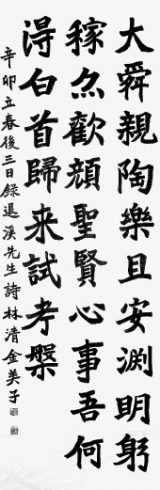 大舜親陶樂且安淵明躬
稼亦歡顔聖賢心事吾何
得白首歸来試考槃
辛卯立春後三日録退溪先生詩林清金美子